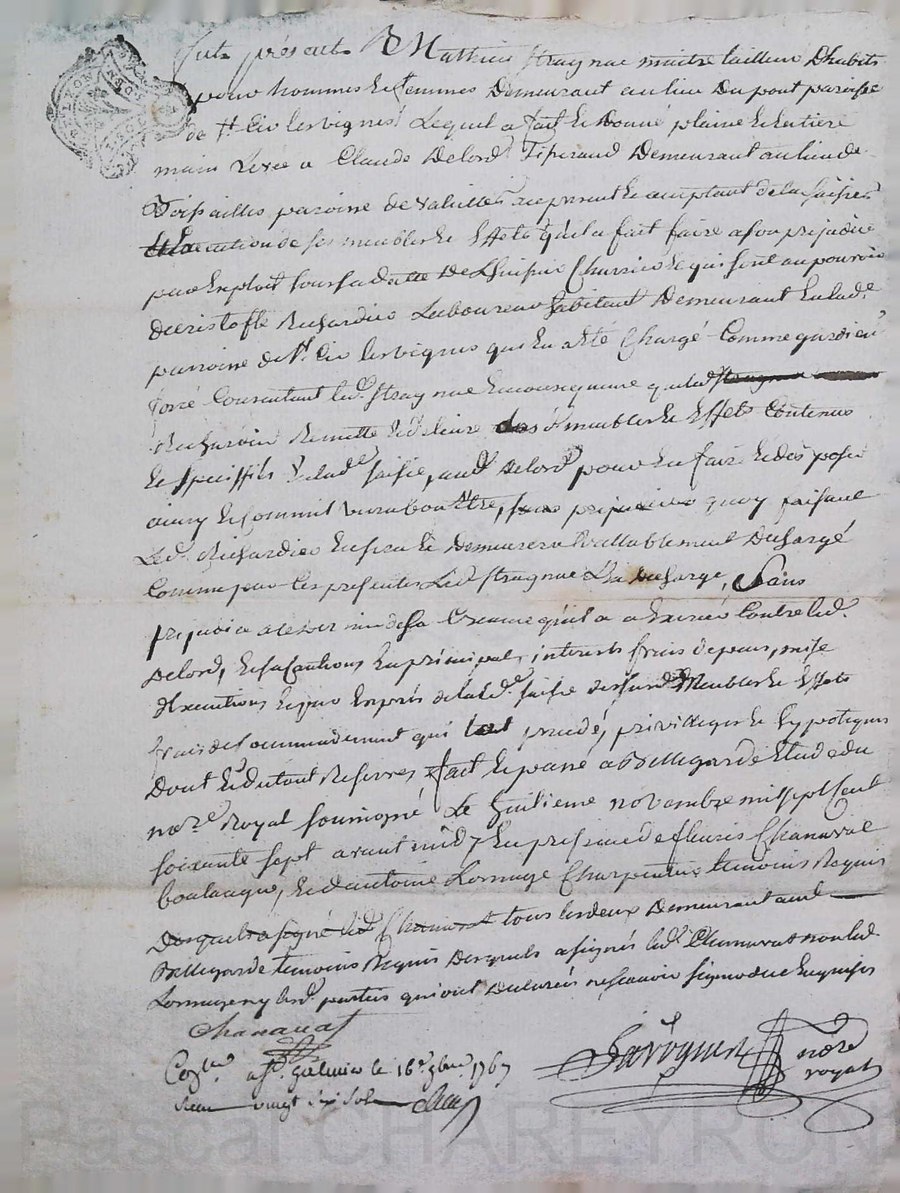 fut présent Mathieu Straynae maitre tailleur Dhabits
pour hommes et femmes Demeurant au lieu Du pont paroisse
de St Cir les vignes Lequel a fait et Donné plaine et Entiere
main Levée a Claude Delord Tisserand Demeurant au lieu de
paroisse de valeilles present et acceptant de la saisie
de ses meubles et Effets qu'il a fait faire a son prejudice
par Exploit sous sa datte De Lhuissier et qui sont au pouvoir
De cristofle Richardier Laboureur habitant Demeurant En lad.e
paroisse de St Cir les vignes qui En a Eté Chargé Comme gardien
forcé Consentant led. Straynae En consequence que led.
Richardier Remette et delivre des d. meubles et Effets Contenus
et En lad.e saisie, aud. Delord pour En faire et disposer
ainsy et Comme verra bon Etre, quoy faisant
Led. Richardier En sera et Demeurera Vallablement Dechargé
Comme par Ces presentes Led. Straynae L'En decharge, Sans
prejudice a ce dernier de sa Creance qu'il a a Exercer Contre led.
Delord, En principal, interets frais depens, mise
d'Execution et par Exprès de lad.e saisie desd. Meubles et Effets
frais de Commandement qui precedé, privilleges et hypoteques
Dont Reserves, fait et passé a Bellegarde Etude du
no.re Royal soussigné Le huitieme novembre mil sept Cent
soixante sept avant midy En presence de fleuris Chanavat
boulanger, et d'antoine Lornage Charpentier temoins Requis
Desquels a signé led. Chanavat tous les deux Demeurant aud.
Bellegarde temoins Requis Desquels a signés led. Chanavat non led.
Lornage ny lesd. parties qui ont Declarés ne scavoir signer de ce Enquises
Chanavat
Con.lé a St. galmier le 16e 9bre 1767
Recu vingt six sols
no.re
royal
Pascal CHAREYRON